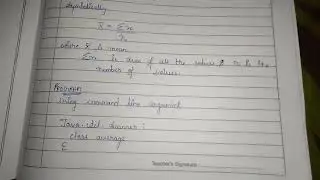 Symbolically
x̄ = Σx
n
where x̄ is mean
Σx is sum of all the values & n is the
number of values.
Program
Using command line argument
Java.util.Scanner;
class average
{
Teacher's Signature